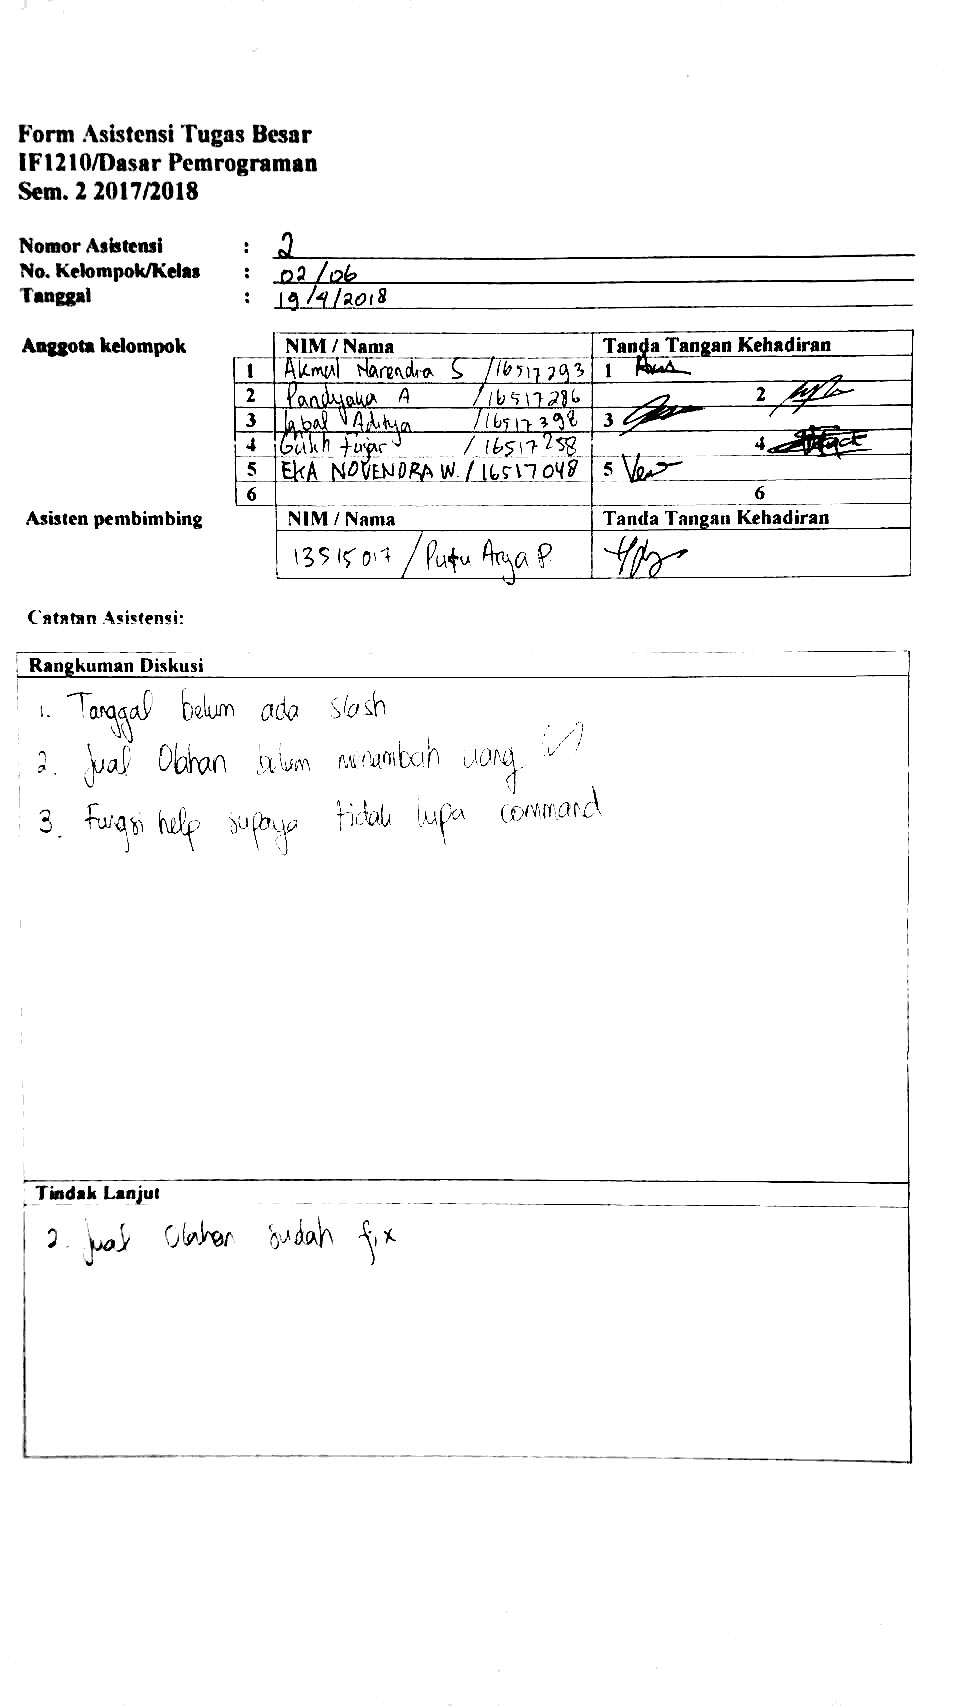 Form Asistensi Tugas Besar
IF1210/Dasar Pemrograman
Sem. 2 2017/2018
Nomor Asistensi : 2
No. Kelompok/Kelas : 02/06
Tanggal : 19/4/2018
Anggota kelompok NIM / Nama Tanda Tangan Kehadiran
1 Akmal Narendra S /16517293 1
2 Pandyaka A /16517286 2
3 Iqbal Aditya /16517398 3
4 Galih Fajar / 16517258 4
5 EKA NOVENDRA W. / 16517048 5
6 6
Asisten pembimbing NIM / Nama Tanda Tangan Kehadiran
13515017 / Putu Arya P.
Catatan Asistensi:
Rangkuman Diskusi
1. Tanggal belum ada slash
2. Jual Olahan belum menambah uang (✓)
3. Fungsi help supaya tidak lupa command
Tindak Lanjut
2. Jual Olahan sudah fix